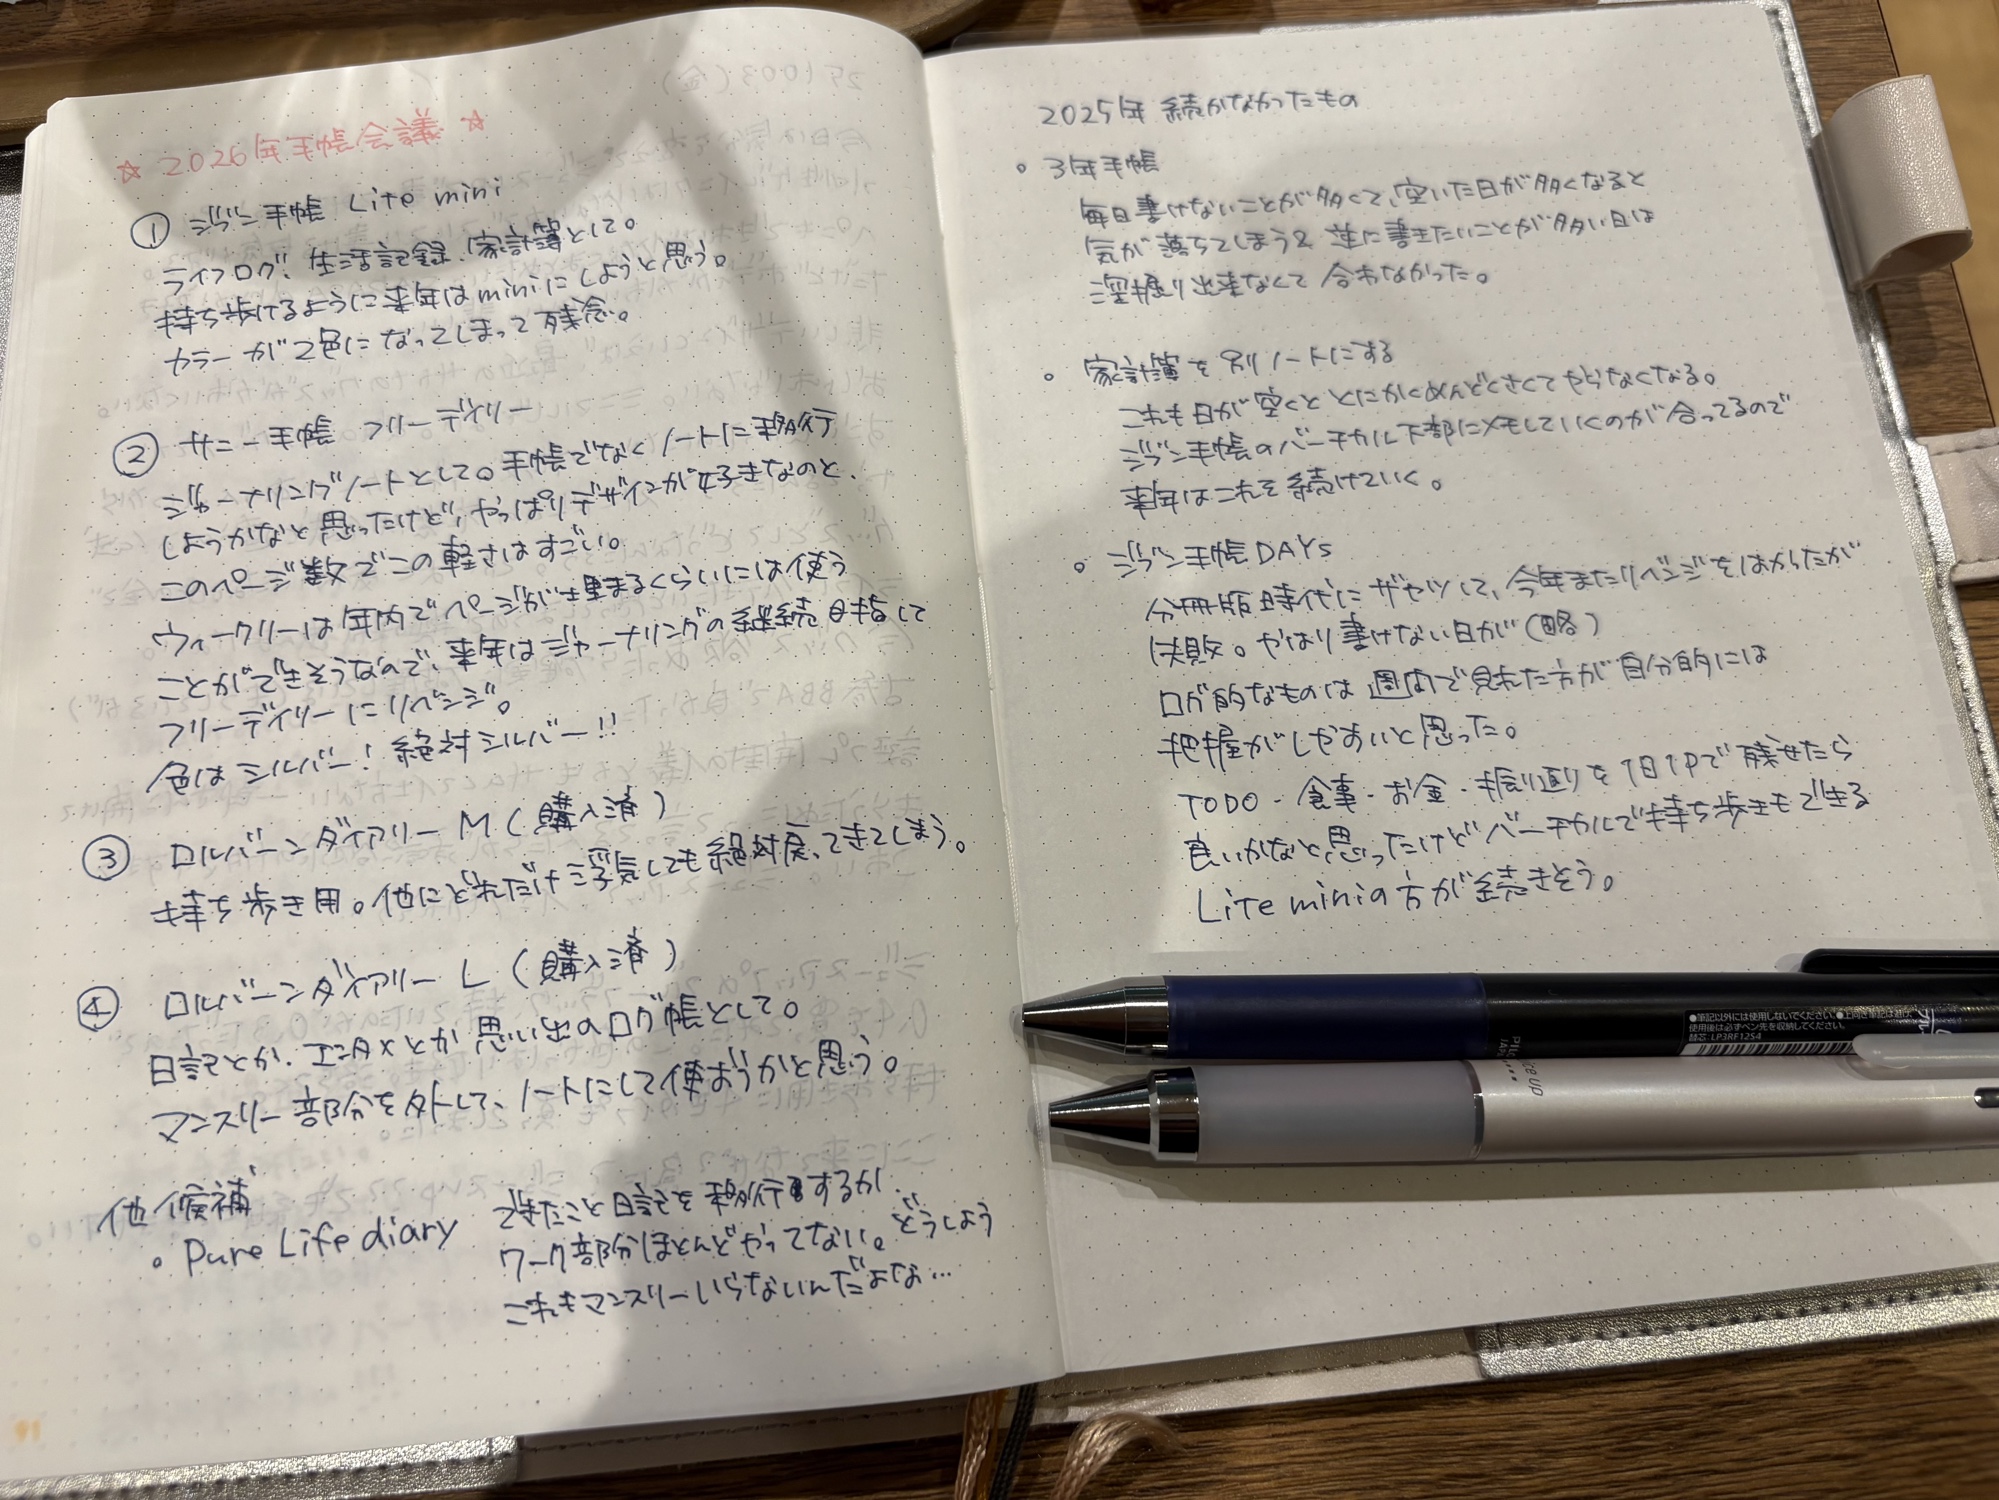 ☆ 2026年手帳会議 ☆
① ジブン手帳 Lite mini
ライフログ、生活記録、家計簿として。
持ち歩けるように来年はminiにしようと思う。
カラーが2色になってしまって残念。
② サニー手帳 フリーデイリー
ジャーナリングノートとして。手帳でなくノートに移行
しようかなと思ったけど、やっぱりデザインが好きなのと、
このページ数でこの軽さはすごい。
ウィークリーは年内でページが埋まるくらいには使う
ことができそうなので、来年はジャーナリングの継続目指して
フリーデイリーにリベンジ。
色はシルバー！絶対シルバー!!
③ ロルバーンダイアリー M（購入済）
持ち歩き用。他にどれだけ浮気しても絶対戻ってきてしまう。
④ ロルバーンダイアリー L（購入済）
日記とか、エンタメとか思い出のログ帳として。
マンスリー部分を外して、ノートにして使おうかと思う。
他候補
。Pure Life diary
できたこと日記を移行するか
ワーク部分ほとんどやってない。どうしよう
これもマンスリーいらないんだよな…
91
2025年 続かなかったもの
。3年手帳
毎日書けないことが多くて、空いた日が多くなると
気が落ちてしまう&逆に書きたいことが多い日は
深掘り出来なくて合わなかった。
。家計簿を別ノートにする
これも日が空くととにかくめんどくさくてやらなくなる。
ジブン手帳のバーチカル下部にメモしていくのが合ってるので
来年はこれを続けていく。
。ジブン手帳DAYs
分冊版時代にザセツして、今年またリベンジをはかったが
失敗。やはり書けない日が（略）
ログ的なものは週間で見れた方が自分的には
把握がしやすいと思った。
TODO・食事・お金・振り返りを1日1Pで残せたら
良いかなと思ったけどバーチカルで持ち歩きもできる
Lite miniの方が続きそう。
●筆記以外には使用しないでください。●上向き筆記は避け、
使用後は必ずペン先を収納してください。
替芯：LP3RF12S4